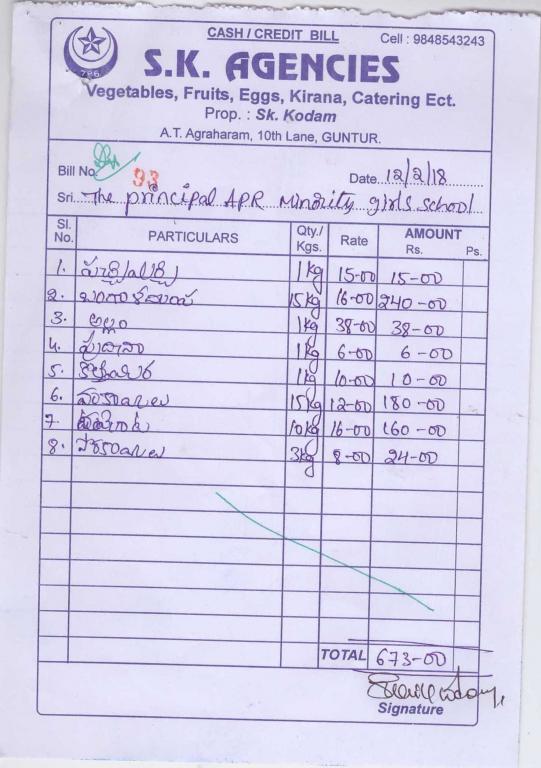 CASH / CREDIT BILL
Cell : 9848543243
786
S.K. AGENCIES
Vegetables, Fruits, Eggs, Kirana, Catering Ect.
Prop. : Sk. Kodam
A.T. Agraharam, 10th Lane, GUNTUR.
Bill No. 93 Date 12/2/18
Sri The principal APR Minority girls school
Sl. No. PARTICULARS Qty./ Kgs. Rate AMOUNT Rs. Ps.
1. 1kg 15-00 15-00
2. 15kg 16-00 240-00
3. అల్లం 1kg 38-00 38-00
4. పుదీనా 1kg 6-00 6-00
5. 1kg 10-00 10-00
6. 15kg 12-00 180-00
7. 10kg 16-00 160-00
8. 3kg 8-00 24-00
TOTAL 673-00
Signature